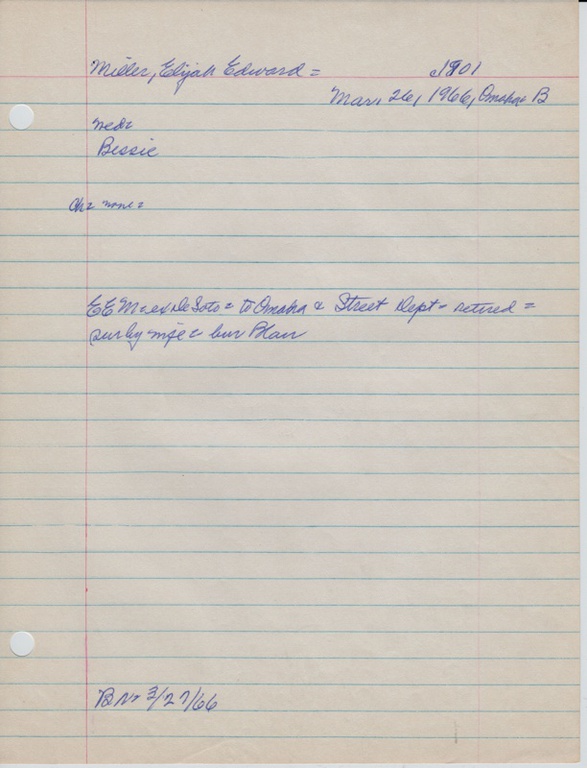 Miller, Elijah Edward = c1901
Mar. 26, 1966, Omaha B
med=
Bessie
Ch= none=
EEM= ex DeSoto = to Omaha & Street Dept = retired =
sur by wife = bur Blair
BN= 3/27/66